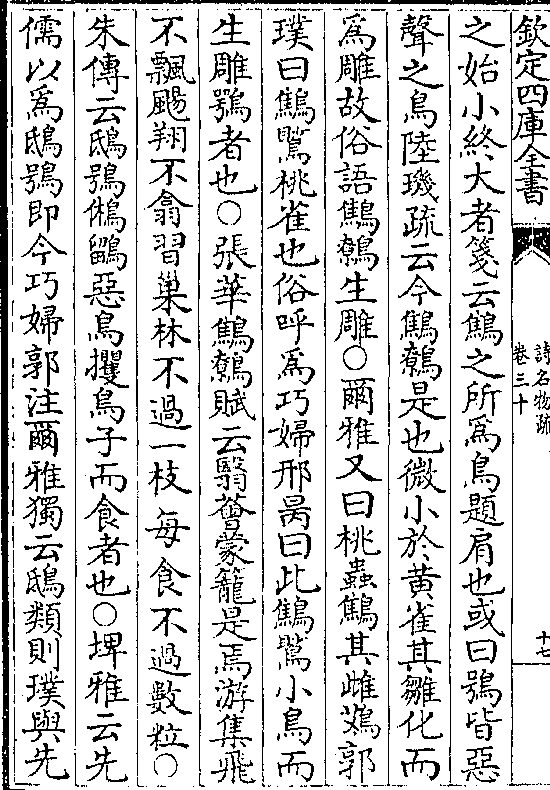 欽定四庫全書
詩名物疏
卷三十
十七
之始小終大者箋云鷦之所為鳥題肩也或曰鴞皆惡
聲之鳥陸璣疏云今鷦鷯是也微小於黄雀其雛化而
為雕故俗語鷦鷯生雕○爾雅又曰桃蟲鷦其雌鴱郭
璞曰鷦䳟桃雀也俗呼為巧婦邢昺曰此鷦䳟小鳥而
生雕鶚者也○張華鷦鷯賦云翳薈蒙籠是焉游集飛
不飄颺翔不翕習巢林不過一枝每食不過數粒○
朱傳云鴟鴞鵂鶹惡鳥攫鳥子而食者也○埤雅云先
儒以為鴟鴞即今巧婦郭注爾雅獨云鴟類則璞與先